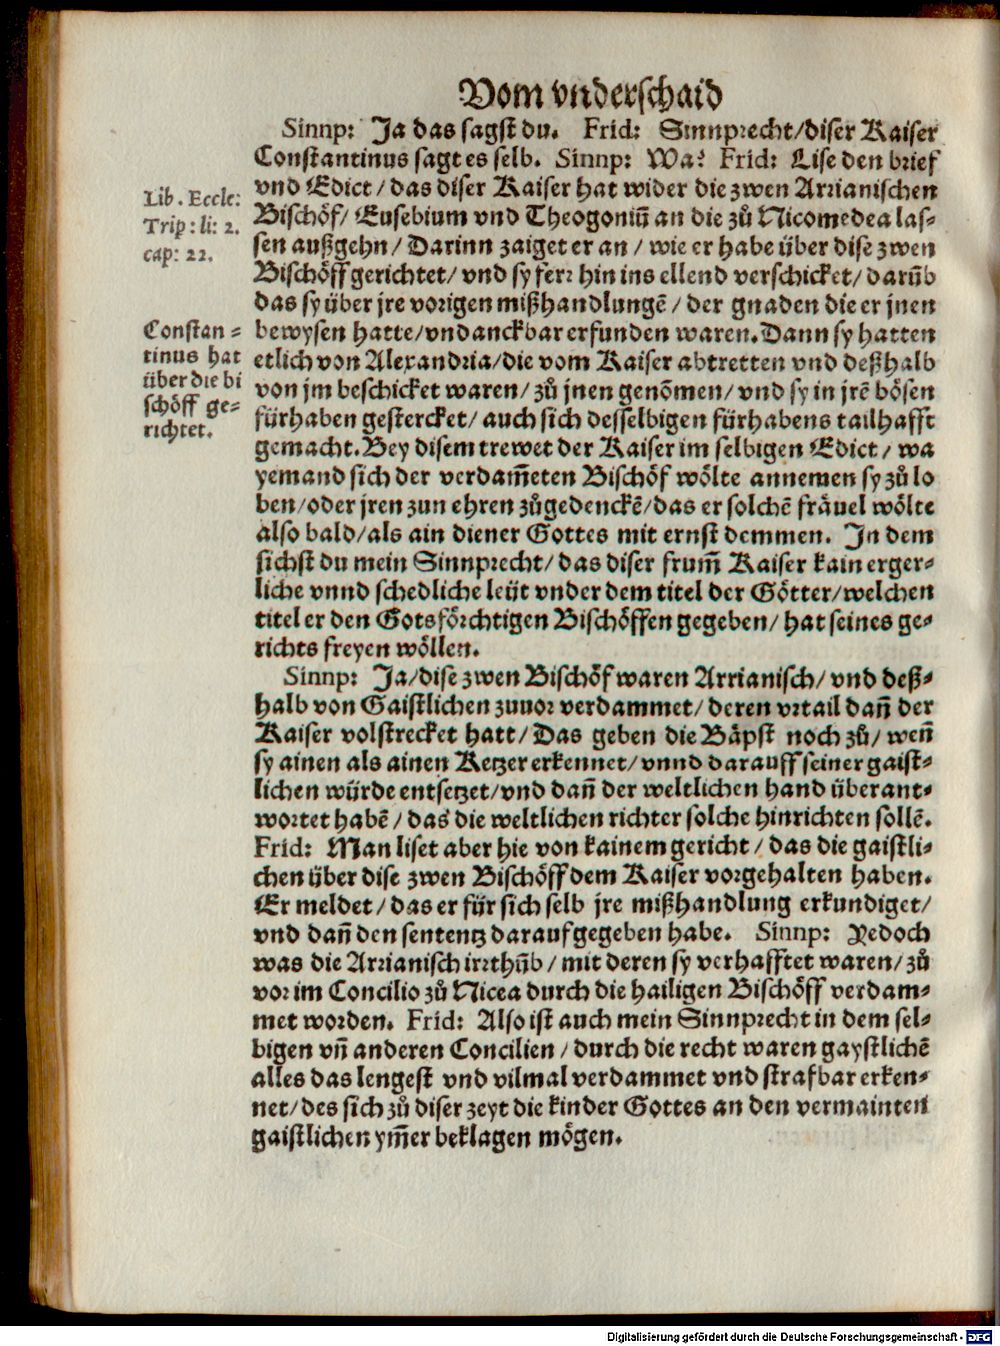 Vom vnderschaid
Sinnp: Ja das sagst du. Frid: Sinnprecht/diser Kaiser
Constantinus sagt es selb. Sinnp: Wa? Frid: Lise den brief
vnd Edict/das diser Kaiser hat wider die zwen Arrianischen
Bischöf/Eusebium vnd Theogoniū an die zů Nicomedea las-
sen außgehn/Darinn zaiget er an/wie er habe über dise zwen
Bischöff gerichtet/vnd sy ferr hin ins ellend verschicket/darūb
das sy über jre vorigen mißhandlungē/der gnaden die er jnen
bewysen hatte/vndanckbar erfunden waren.Dann sy hatten
etlich von Alexandria/die vom Kaiser abtretten vnd deßhalb
von jm beschicket waren/zů jnen genōmen/vnd sy in jrē bösen
fürhaben gestercket/auch sich desselbigen fürhabens tailhafft
gemacht.Bey disem trewet der Kaiser im selbigen Edict/wa
yemand sich der verdam̄eten Bischöf wölte annemen sy zů lo
ben/oder jren zun ehren zůgedenckē/das er solchē fräuel wölte
also bald/als ain diener Gottes mit ernst demmen. In dem
sichst du mein Sinnprecht/das diser frum̄ Kaiser kain erger-
liche vnnd schedliche leüt vnder dem titel der Götter/welchen
titel er den Gotsförchtigen Bischöffen gegeben/hat seines ge-
richts freyen wöllen.
Sinnp: Ja/dise zwen Bischöf waren Arrianisch/vnd deß-
halb von Gaistlichen zuuor verdammet/deren vrtail dañ der
Kaiser volstrecket hatt/Das geben die Bäpst noch zů/weñ
sy ainen als ainen Ketzer erkennet/vnnd darauff seiner gaist-
lichen würde entsetzet/vnd dañ der weltlichen hand überant-
wortet habē/das die weltlichen richter solche hinrichten sollē.
Frid: Man liset aber hie von kainem gericht/das die gaistli-
chen über dise zwen Bischöff dem Kaiser vorgehalten haben.
Er meldet/das er für sich selb jre mißhandlung erkundiget/
vnd dañ den sententz darauf gegeben habe. Sinnp: Yedoch
was die Arrianisch irrthūb/mit deren sy verhafftet waren/zů
vor im Concilio zů Nicea durch die hailigen Bischöff verdam-
met worden. Frid: Also ist auch mein Sinnprecht in dem sel-
bigen vñ anderen Concilien/durch die recht waren gaystlichē
alles das lengest vnd vilmal verdammet vnd strafbar erken-
net/des sich zů diser zeyt die kinder Gottes an den vermainten
gaistlichen ym̄er beklagen mögen.
Lib. Eccle:
Trip: li: 2.
cap: 22.
Constan-
tinus hat
über die bi
schöff ge-
richtet.
Digitalisierung gefördert durch die Deutsche Forschungsgemeinschaft - DFG